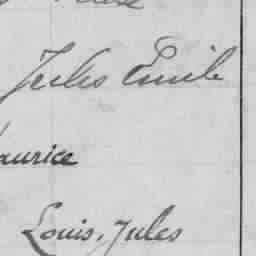 Jules Émile
aurice
Louis, Jules